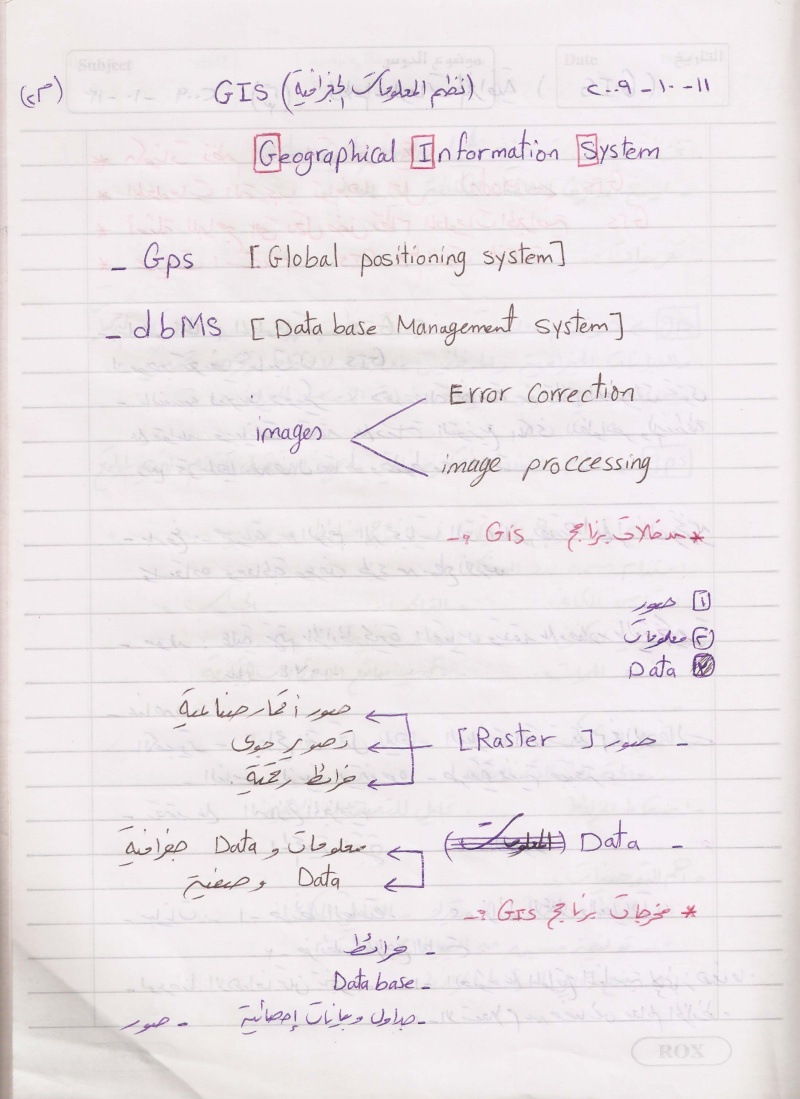 GIS (نظم المعلومات الجغرافية) ٢٠٠٩ - ١٠ - ١١
Geographical Information System
- Gps [Global positioning system]
- dbMS [Data base Management System]
images
Error correction
image proccessing
* مدخلات برنامج Gis :-
١ صور
٢ معلومات
Data
- صور [Raster]
صور أقمار صناعية
تصوير جوى
خرائط رقمية.
- Data
معلومات و Data جغرافية
Data وصفية
* مخرجات برنامج GIS :-
- خرائط
- Data base
- جداول وبيانات إحصائية - صور
ROX